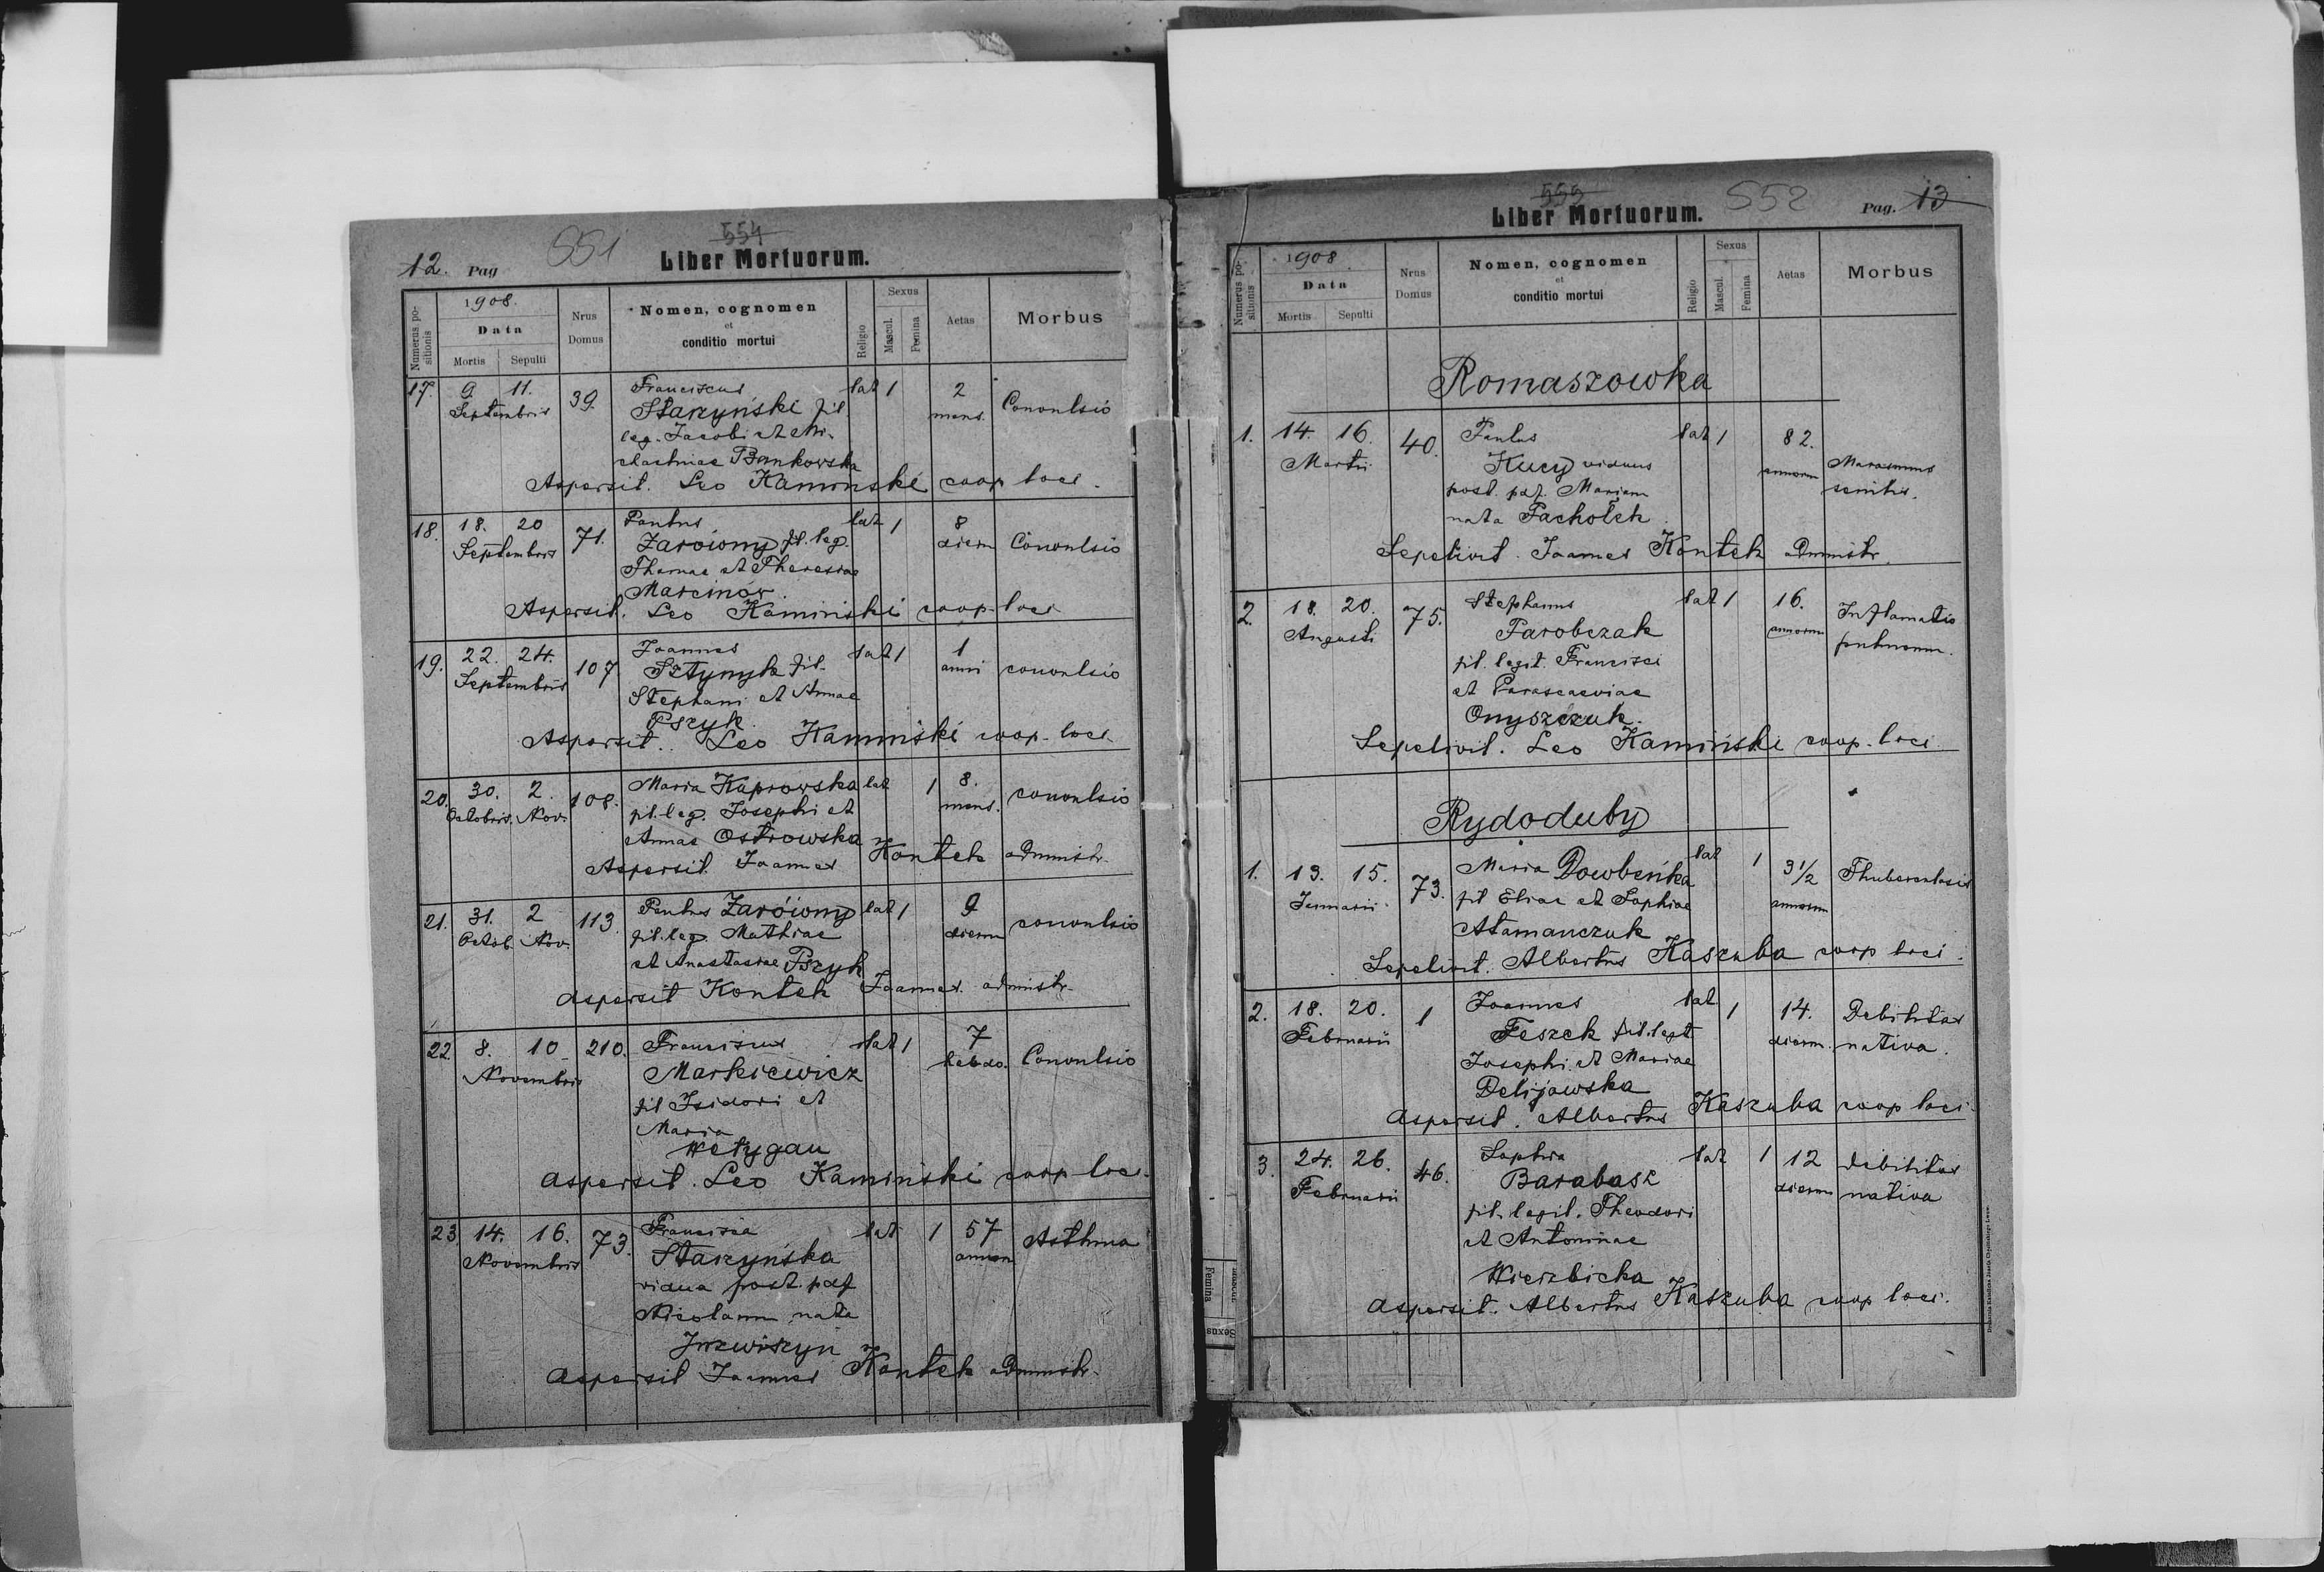 12. Pag 551 554
Liber Mortuorum.
Numerus positionis
1908
Data
Mortis Sepulti
Nrus Domus
Nomen, cognomen
et
conditio mortui
Religio
Sexus
Mascul. Femina
Aetas
Morbus
17. 9. 11. 39. Franciscus lat 1 2 Convulsio
Septembris Starzyński fil mens.
leg. Jacobi et
Bankowska
Aspersit. Leo Kaminski coop loci.
18. 18. 20 71. Paulus lat 1 8 Convulsio
Septembris Zarówny fil. leg. dierum
Thomae et Theresiae
Marcinów.
Aspersit. Leo Kaminski coop. loci
19. 22. 24. 107 Joannes lat 1 1 convulsio
Septembris Sztynyk fil. anni
Stephani et Annae
Pszyk.
Aspersit. Leo Kaminski coop. loci
20. 30. 2. 108. Maria Kaprowska lat 1 8. convulsio
Octobris. Nov. fil. leg. Josephi et mens.
Annae Ostrowska
Aspersit Joannes Kontek administr.
21. 31. 2 113. Paulus Zarówny lat 1 9 convulsio
Octob. Nov. fil. leg. Mathiae dierum
et Anastasiae Pszyk
Aspersit Kontek Joannes. administr.
22. 8. 10 210. Franciscus lat 1 7 Convulsio
Novembris Markiewicz hebdo.
fil Isidori et
Maria
Wetygan
Aspersit. Leo Kaminski coop loci.
23. 14. 16. 73. Francisca lat 1 57 Asthma
Novembris Starzyńska annorum
vidua post. paf
Nicolaum nata
Aspersit Joannes Kontek administr.
553 552 Pag. 13
Liber Mortuorum.
Numerus positionis
1908
Data
Mortis Sepulti
Nrus Domus
Nomen, cognomen
et
conditio mortui
Religio
Sexus
Mascul. Femina
Aetas
Morbus
Romaszowka
1. 14. 16. 40. Paulus lat 1 82. Marasmus
Martii Kucy viduus annorum senilis.
post. paf. Mariam
nata Pacholek
Sepelivit. Joannes Kontek administr.
2. 18. 20. 75. Stephanus lat 1 16. Inflamatio
Augusti Parobczak annorum pulmonum.
fil. legit. Francisci
et Parascaeviae
Onyszczuk.
Sepelivit. Leo Kamiński coop. loci
Rydoduby
1. 13. 15. 73. Maria Dowbeńka lat 1 3 1/2 Thuberculosis
Januarii fil Eliae et Sophiae annorum
Atamanczuk
Sepelivit. Albertus Kaszuba coop loci.
2. 18. 20. 1 Joannes lat 1 14. Debilitas
Februarii Feszek fil. legt dierum. nativa.
Josephi et Mariae
Delijowska
Aspersit. Albertus Kaszuba coop loci
3. 24. 26. 46. Sophia lat 1 12 debilitas
Februarii Barabasz dierum nativa
fil. legit. Theodori
et Antoninae
Wierzbicka
Aspersit. Albertus Kaszuba coop loci.
Femina
Sexus